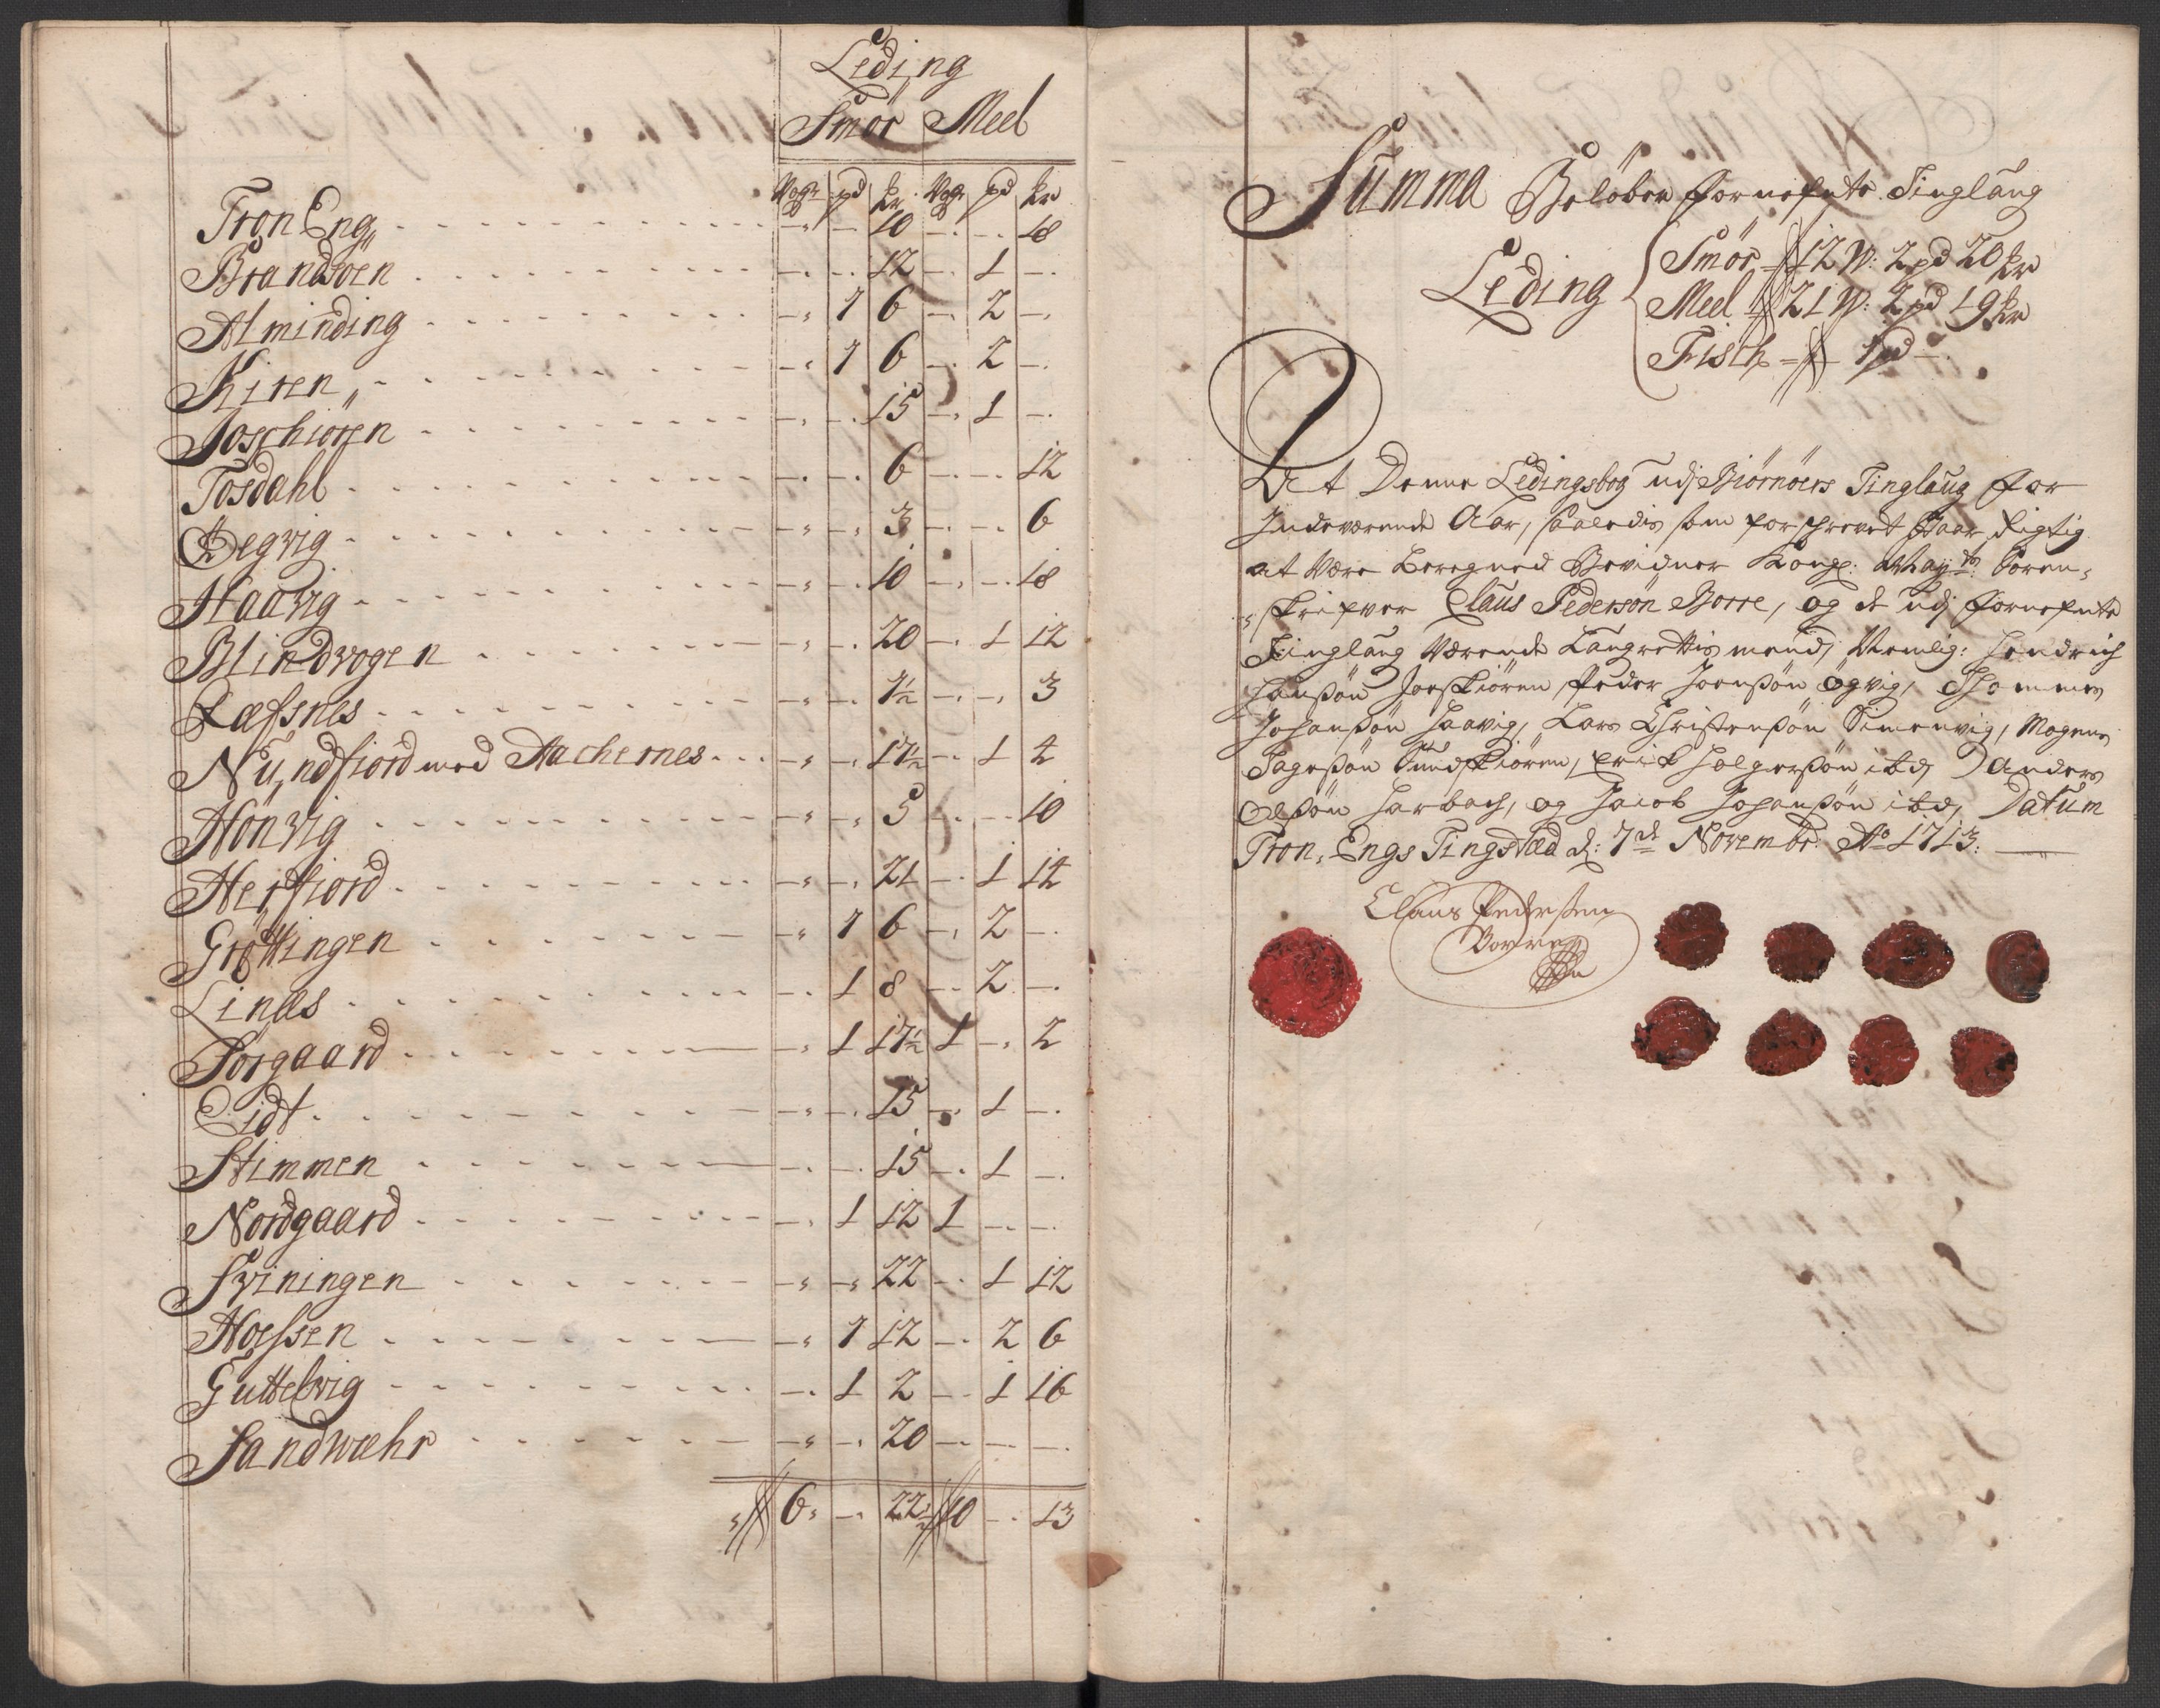 Leding
Smör Meel
Vog pd kr Vog pd kr
Tron Eng - - 10 - - 18
Brandsøen - - 12 - 1 -
Alminding - 1 6 - 2 -
Kiren - 1 6 - 2 -
Joschiören - - 15 - 1 -
Tosdahl - - 6 - - 12
Øegvig - - 3 - - 6
Haavig - - 10 - - 18
Blindvogen - - 20 - 1 12
Ræfsnes - - 1½ - - 3
Nundfiord med Aachernes - - 17½ - 1 4
Hönvig - - 5 - - 10
Herfiord - - 21 - 1 14
Gröttingen - 1 6 - 2 -
Linæs - 1 8 - 2 -
Sörgaard - 1 17½ 1 - 2
Eidt - - 15 - 1 -
Stimmen - - 15 - 1 -
Nordgaard - 1 12 1 - -
Sviningen - - 22 - 1 12
Hoefsen - 1 12 - 2 6
Guttelvig - 1 2 - 1 16
Sandwæhr - - 20 - - -
6 - 22½ 10 - 13
Summa Beløber fornefnte Tinglaug
Leding
Smör - 12 W: 2 pd 20 kr
Meel 21 W: 2 pd 19 kr
Fisch - - 1 pd -
At Denne Ledingsbog udj Biörnöers Tinglaug for
Indeværende Aar, saaledis som forschrevet staar, Rigtig
at være Beregned Bevidner Kongl: Mayts: Soren-
skrifver Claus Pedersön Borre, og de udj fornefnte
Tinglaug Værende Laugrettismænd, Nemlig: Hendrich
Hansön Joeskiören, Peder Joensön Øgvig, Thommes
Johansön Haavig, Lars Christensön Simenvig, Mogens
Tagesön Sundskiören, Erich Holgersön ibd, Anders
Olsön Harbach, og Jacob Johansön ibd, Datum
Tron, Engs Tingsted d: 7de Novembr: Ao 1713.
Claus Pedersen
Borre